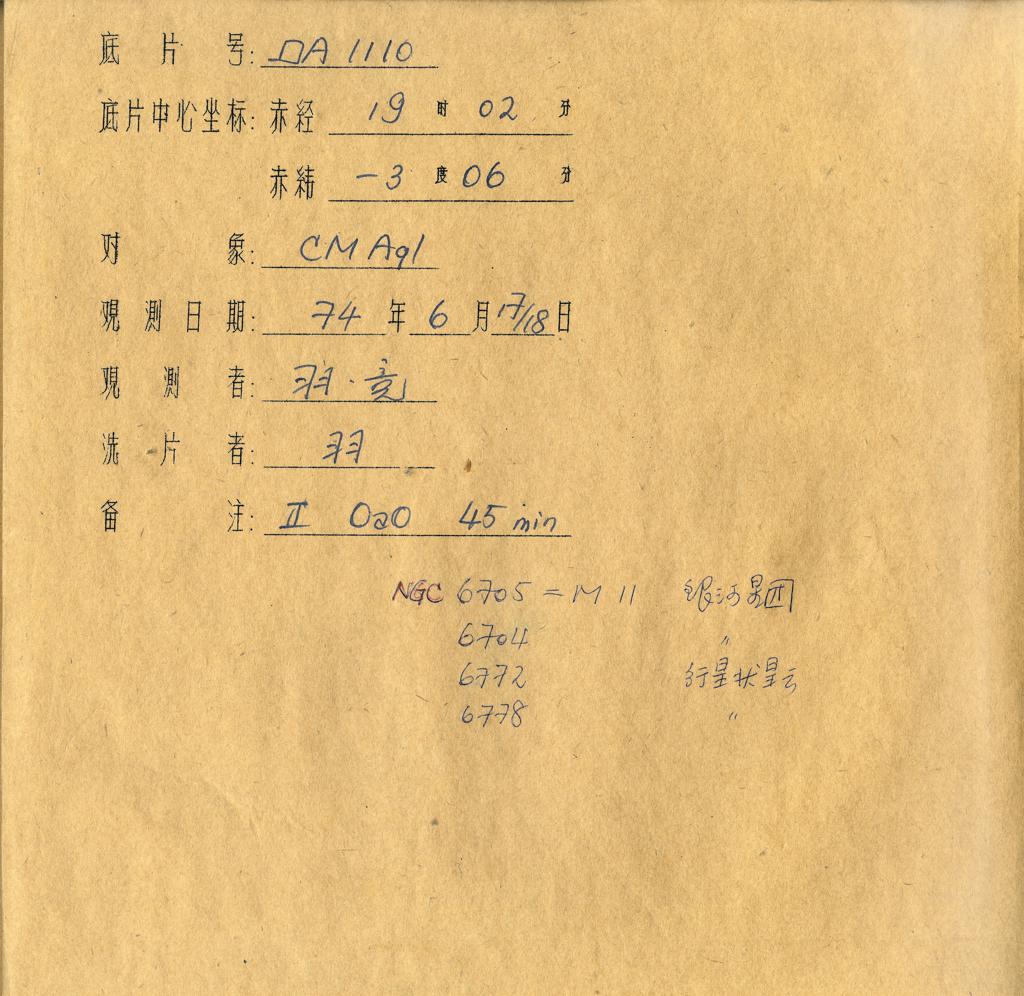 底片号: DA 1110
底片中心坐标: 赤经 19 时 02 分
赤纬 -3 度 06 分
对象: CM Aql
观测日期: 74 年 6 月 17/18 日
观测者: 羽·竞
洗片者: 羽
备注: II OaO 45 min
NGC 6705 = M 11 银河星团
6704 〃
6772 行星状星云
6778 〃